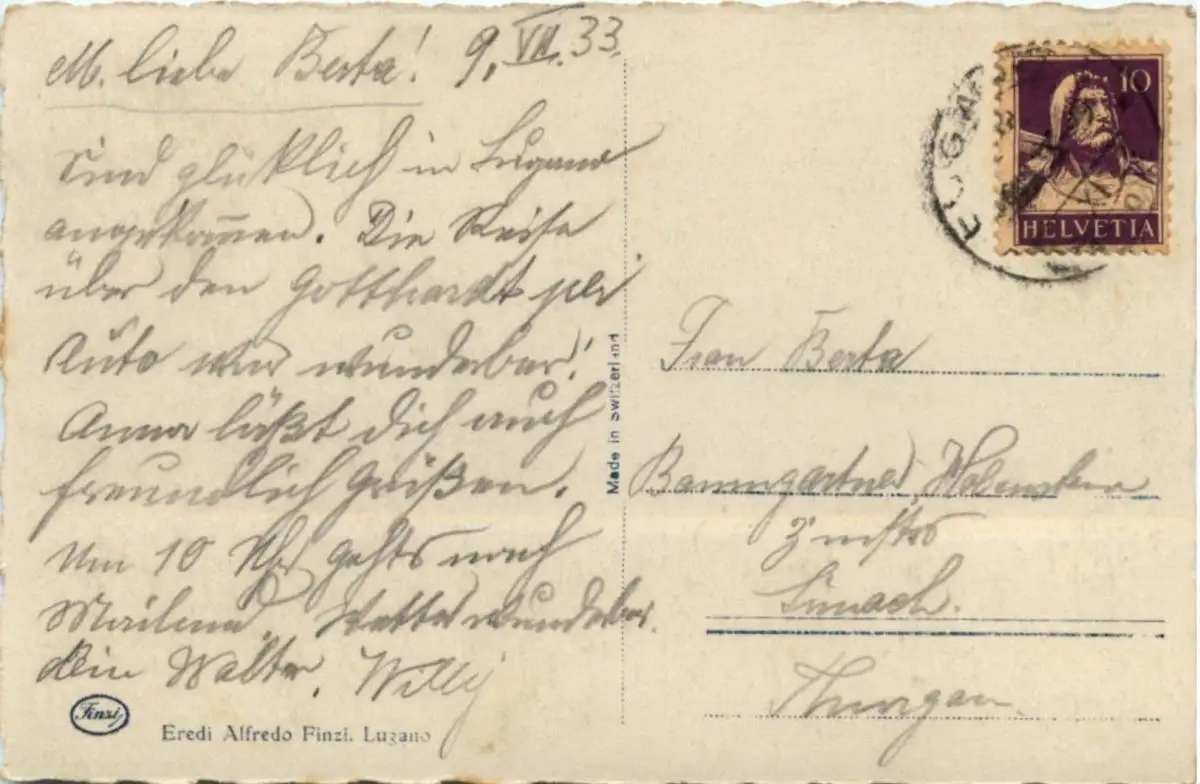 M. liebe Berta! 9. VII. 33.
Sind glüklich in Lugano
angekom̅en. Die Reise
über den Gotthardt per
Auto war wunderbar!
Anna läßt Dich auch
freundlich Grüßen.
Um 10 Uhr gehts nach
Mailand. Wetter wunderbar.
dein Walter. Willy
Finzi
Eredi Alfredo Finzi. Lugano
Made in Switzerland
LUGANO
10
HELVETIA
Frau Berta
Baumgartner Holenstein
Sirnach.
Thurgau